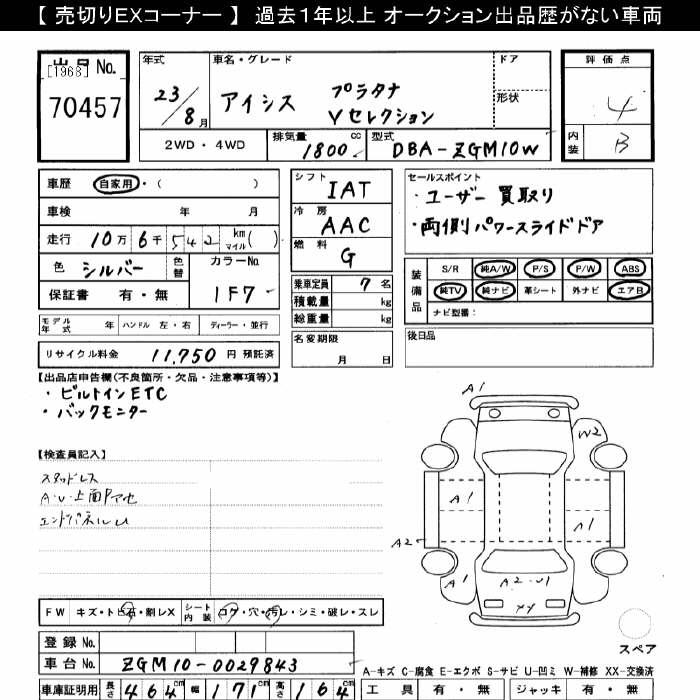 【 売切りEXコーナー 】 過去1年以上 オークション出品歴がない車両
出品No.
[1968]
70457
年式
23/8月
車名・グレード
アイシス プラタナ
Vセレクション
ドア
形状
評価点
4
内装 B
2WD・4WD
排気量 1800cc
型式 DBA-ZGM10W
車歴 自家用・( )
車検 年 月
走行 10万6千542 km マイル( )
色 シルバー 色替
カラーNo. 1F7
保証書 有・無
シフト IAT
冷房 AAC
燃料 G
乗車定員 7名
積載量 kg
総重量 kg
セールスポイント
・ユーザー買取り
・両側パワースライドドア
装備品
S/R 純A/W P/S P/W ABS
純TV 純ナビ 革シート 外ナビ エアB
ナビ型番:
モデル年式 年 ハンドル 左・右 ディーラー・並行
名変期限
月 日
後日品
リサイクル料金 11,750 円 預託済
【出品店申告欄(不良箇所・欠品・注意事項等)】
・ビルトインETC
・バックモニター
【検査員記入】
スタッドレス
A・U・上面
エンドパネルU
A1
W2
A1
A1
A2
A1
A2・U1
XX
スペア
FW キズ・トビ石・割レX
シート内装 コゲ・穴・汚レ・シミ・破レ・スレ
登録No.
車台No. ZGM10-0029843
A-キズ C-腐食 E-エクボ S-サビ U-凹ミ W-補修 XX-交換済
車庫証明用 長さ 464cm 幅 171cm 高さ 164cm
工具 有・無 ジャッキ 有・無